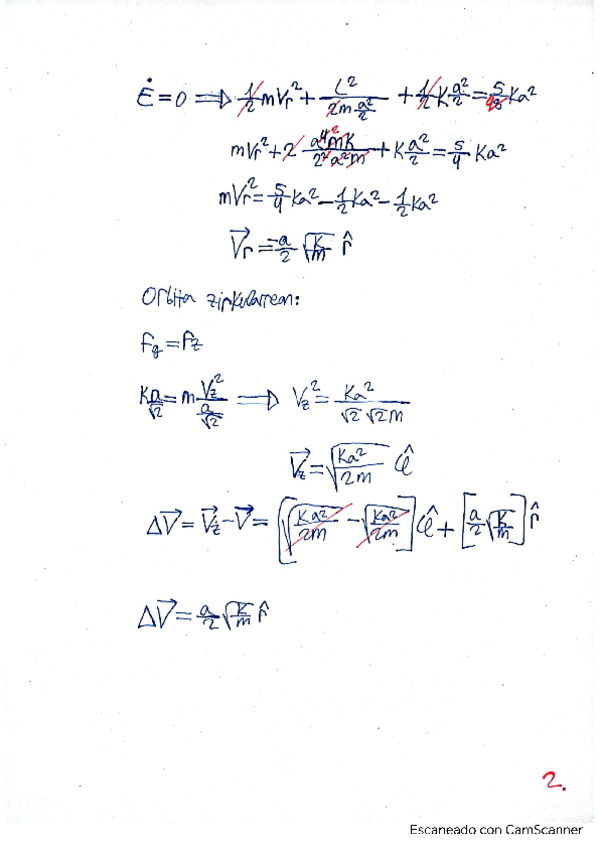 Ė=0 ⟹ 1/2 mVr² + L²/(2m a²/2) + 1/2 K a²/2 = 5/8 Ka²
mVr² + 2 a⁴mK/(2² a² m) + K a²/2 = 5/4 Ka²
mVr² = 5/4 Ka² − 1/2 Ka² − 1/2 Ka²
V⃗r = −a/2 √(K/m) r̂
Orbita zirkularrean:
Fg = Fz
K a/√2 = m Vz²/(a/√2) ⟹ Vz² = Ka²/(√2 √2 m)
V⃗z = √(Ka²/2m) φ̂
ΔV⃗ = V⃗z − V⃗ = [√(Ka²/2m) − √(Ka²/2m)] φ̂ + [a/2 √(K/m)] r̂
ΔV⃗ = a/2 √(K/m) r̂
2.
Escaneado con CamScanner